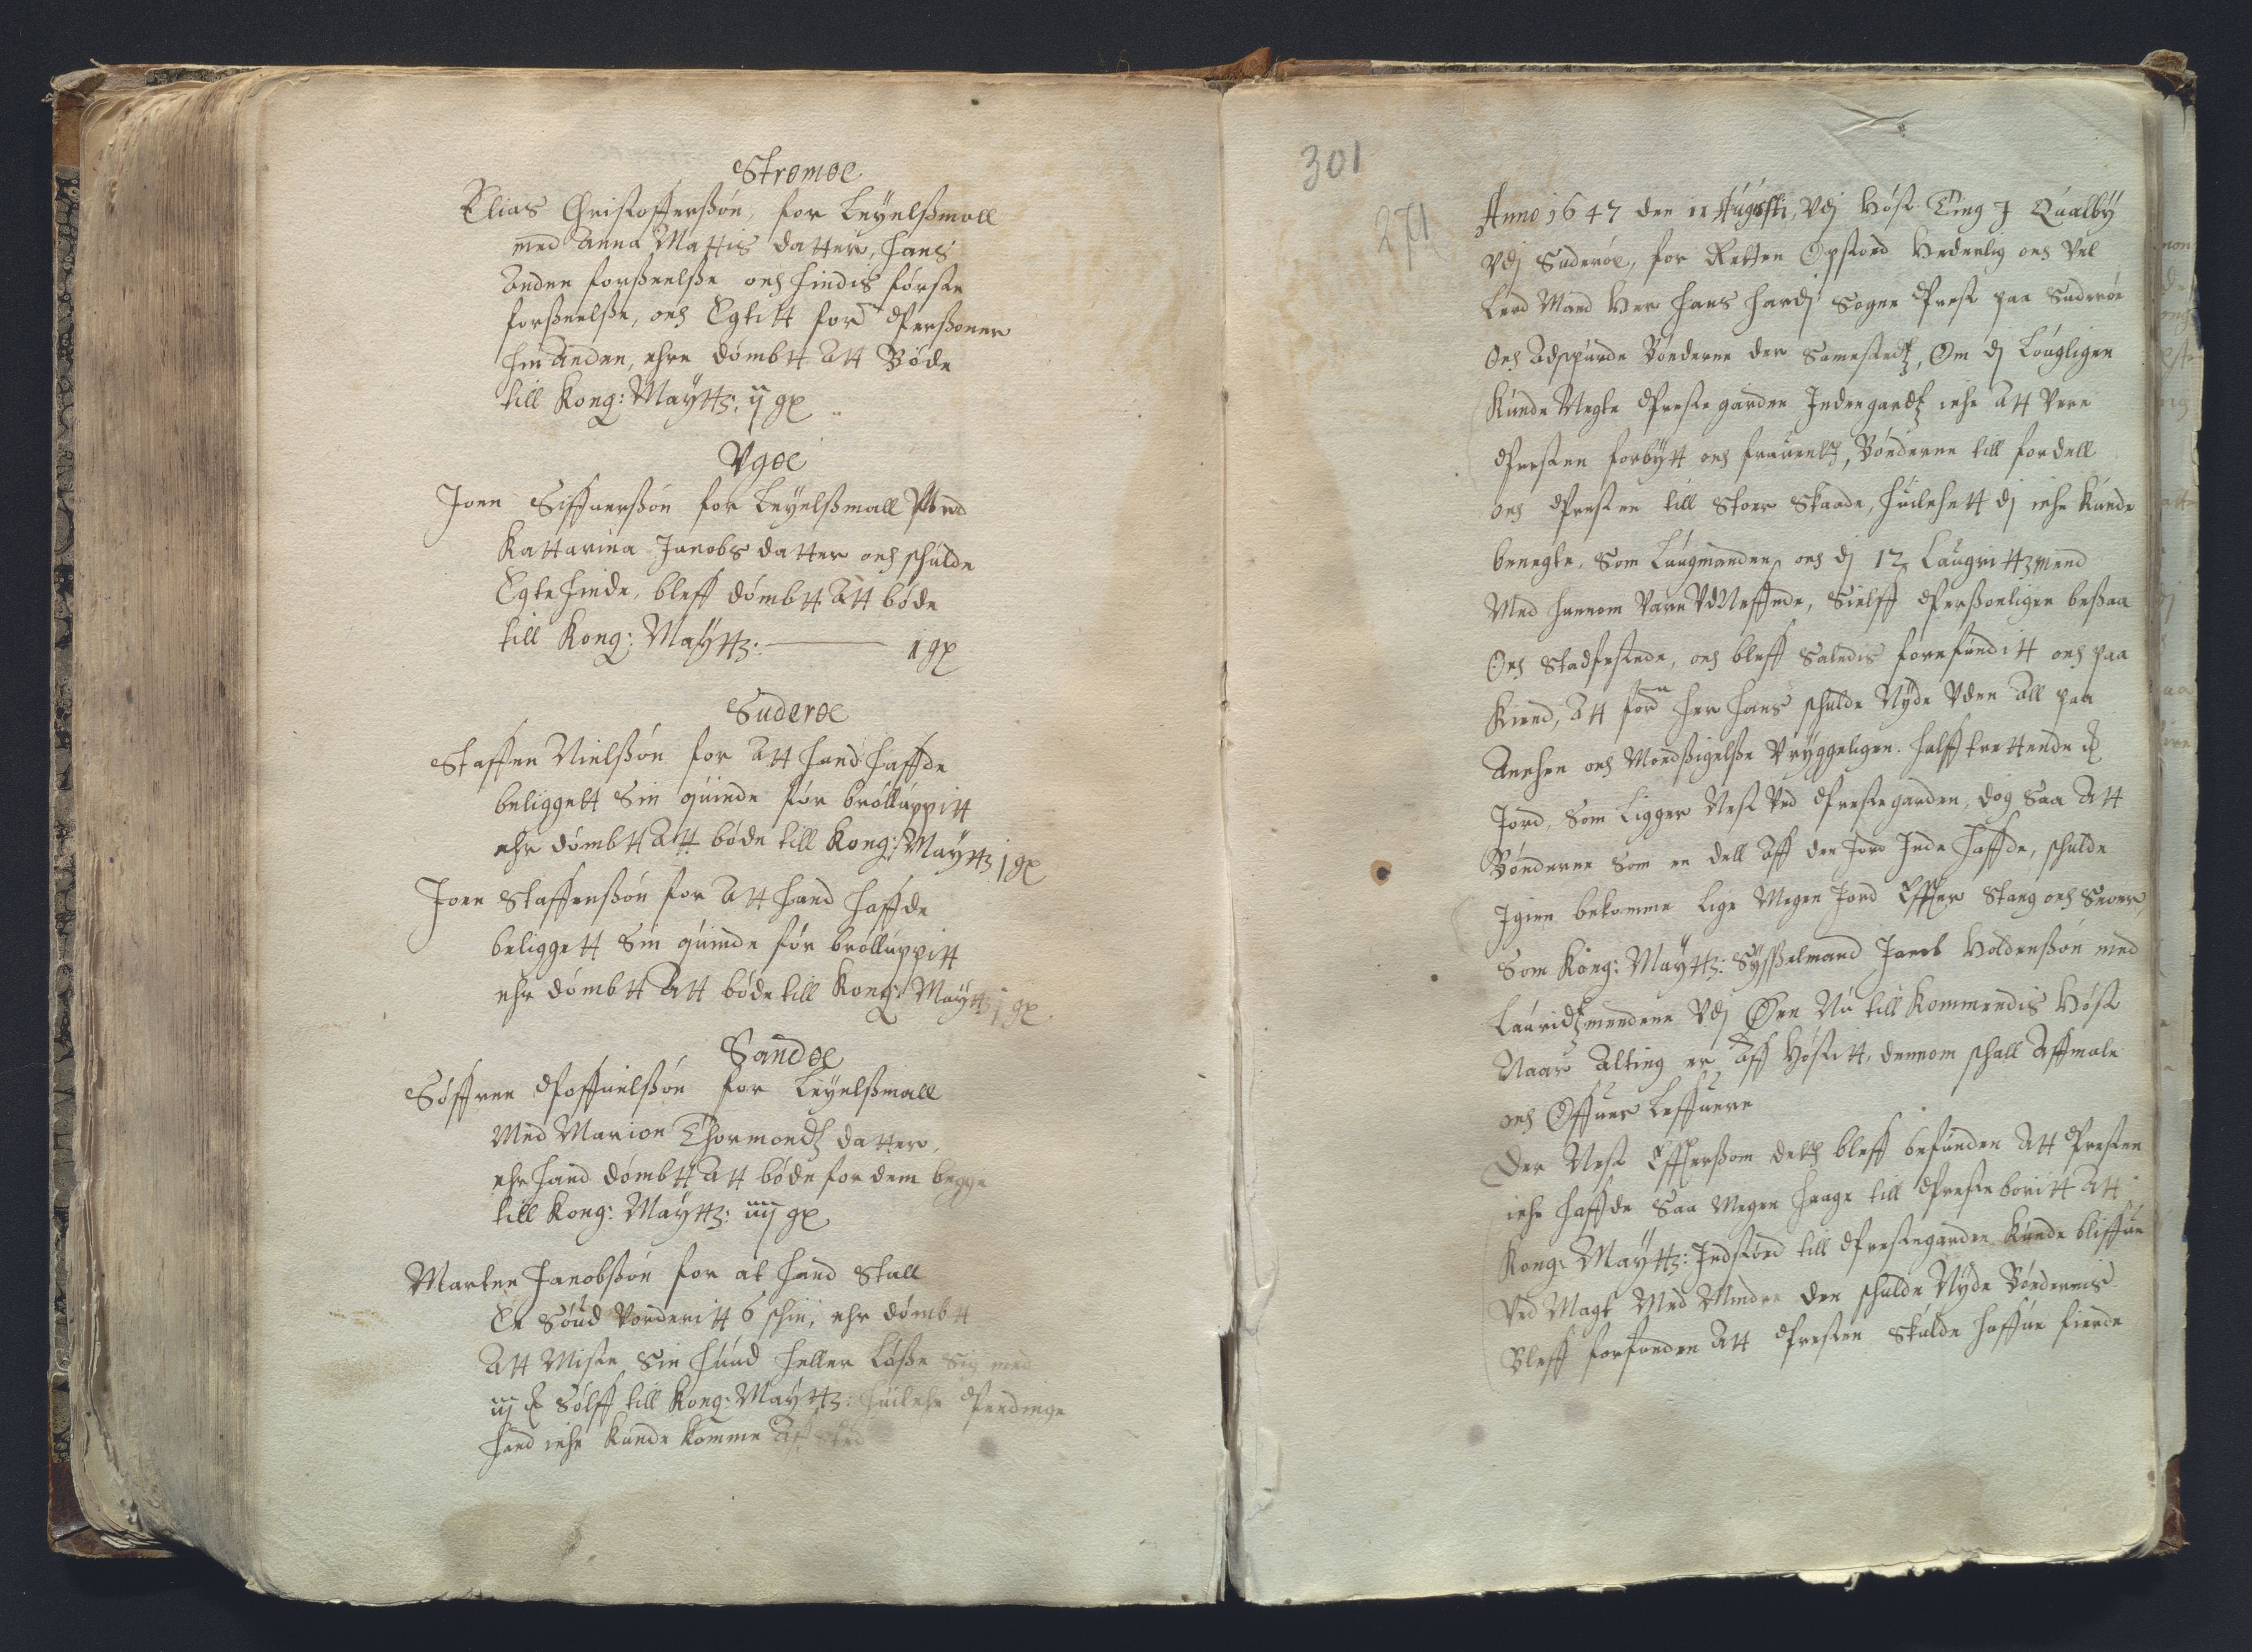 Strømøe
Elias Christofferßøn, for Leyelßmall
med Anna Mattis datter, hans
Anden forßeelße och hindis første
forßeelße, och Egtitt ford: Perßoner
hin Anden, ehre dømbtt Att Bøde
till Kong: Maytts: ij gl
Vgøe
Joen Siffuerßøn for Leyelßmall Med
Kattarina Jacobs datter och schulde
Egte hinde, bleff dømbtt Att bøde
till Kong: Maytts: 1 gl
Suderøe
Staffen Nielßøn for Att hand haffde
beliggett Sin quinde før brølluppitt
ehr dømbtt Att bøde till Kong: Maytts j gl
Joen Staffenßøn for Att hand haffde
beliggett Sin quinde før brølluppitt
ehr dømbtt Att bøde till Kong: Maytts j gl
Sandøe
Søffren Poffuelßøn for Leyelßmall
Med Marion Thormondtz datter,
ehr hand dømbtt Att bøde for dem begge
till Kong: Maytts: iiij gl
Marten Jacobßøn for at hand Stall
En Soud Vorderitt 6 schin, ehr dømbtt
Att Miste Sin Huud heller Løße Sig med
iij Sølff till Kong: Maytts: huilche Pendinge
hand iche kunde komme Aff Sted
301
271
Anno 1647 den 11 Augusti, Vdj Høst Ting J Qualby
Vdj Suderøe, for Retten Opstod Hederlig och Vel
Lerd Mand Her Hans Hardj Sogne Prest paa Suderøe
Och Adspurde Bønderne der Samestedtz, Om dj Lougligen
Kunde Negte Prestegarden Indengardtz iche Att Vere
Presten forbytt och frauendt, Bønderne till fordell
och Presten till Stoer Skaade, huilchett dj iche kunde
benegte, Som Laugmanden och dj 12 Laugrittzmend
Med hannom Vare VdNeffnde, Sielff Perßonligen beßaa
Och Stadfestede, och bleff Saledis forefunditt och paa
Kiend, Att ford Her Hans schulde Nyde Vden All paa
Anchen och Modßigelße Vryggeligen. halfftrettende
Jord, Som Ligger Nest Ved Prestegarden, dog Saa Att
Bønderne Som en dell Aff den Jord Inde haffde, schulde
Igien bekomme Lige Megen Jord Effter Stang och Snoer,
Som Kong: Maytts: Sysßelmand Jacob Holdenßøn med
Lauridtzmendene Vdj Øen Nu till Kommendis Høst
Naar Alting er Aff Høstitt, dennom schall Affmale
och Offuer Leffuere
Der Nest Effterßom deth bleff befunden Att Presten
iche haffde Saa Megen haage till Prestebolitt Att
Kong: Maytts: Indstød till Prestegarden Kunde bliffue
Ved Magt Med Mindre den schulde Nyde Bøndernis
Bleff forfunden Att Presten Skulde haffue fierde